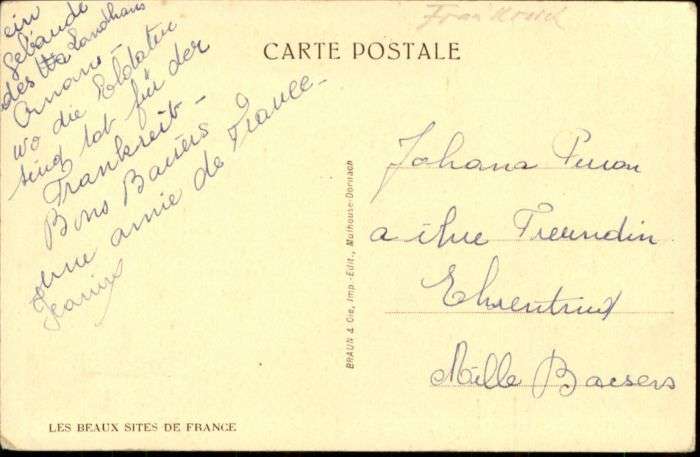 ein
Gebäude
des Landhaus
Ornano -
wo die Eldaten
sind tot für der
Frankreib -
Bons Baisers
une amie de France -
Jeanine
Frankreich
CARTE POSTALE
Johana
a ihre Freundin
Ehrentrud
Mille Baisers
BRAUN & Cie, Imp.-Edit., Mulhouse-Dornach
LES BEAUX SITES DE FRANCE